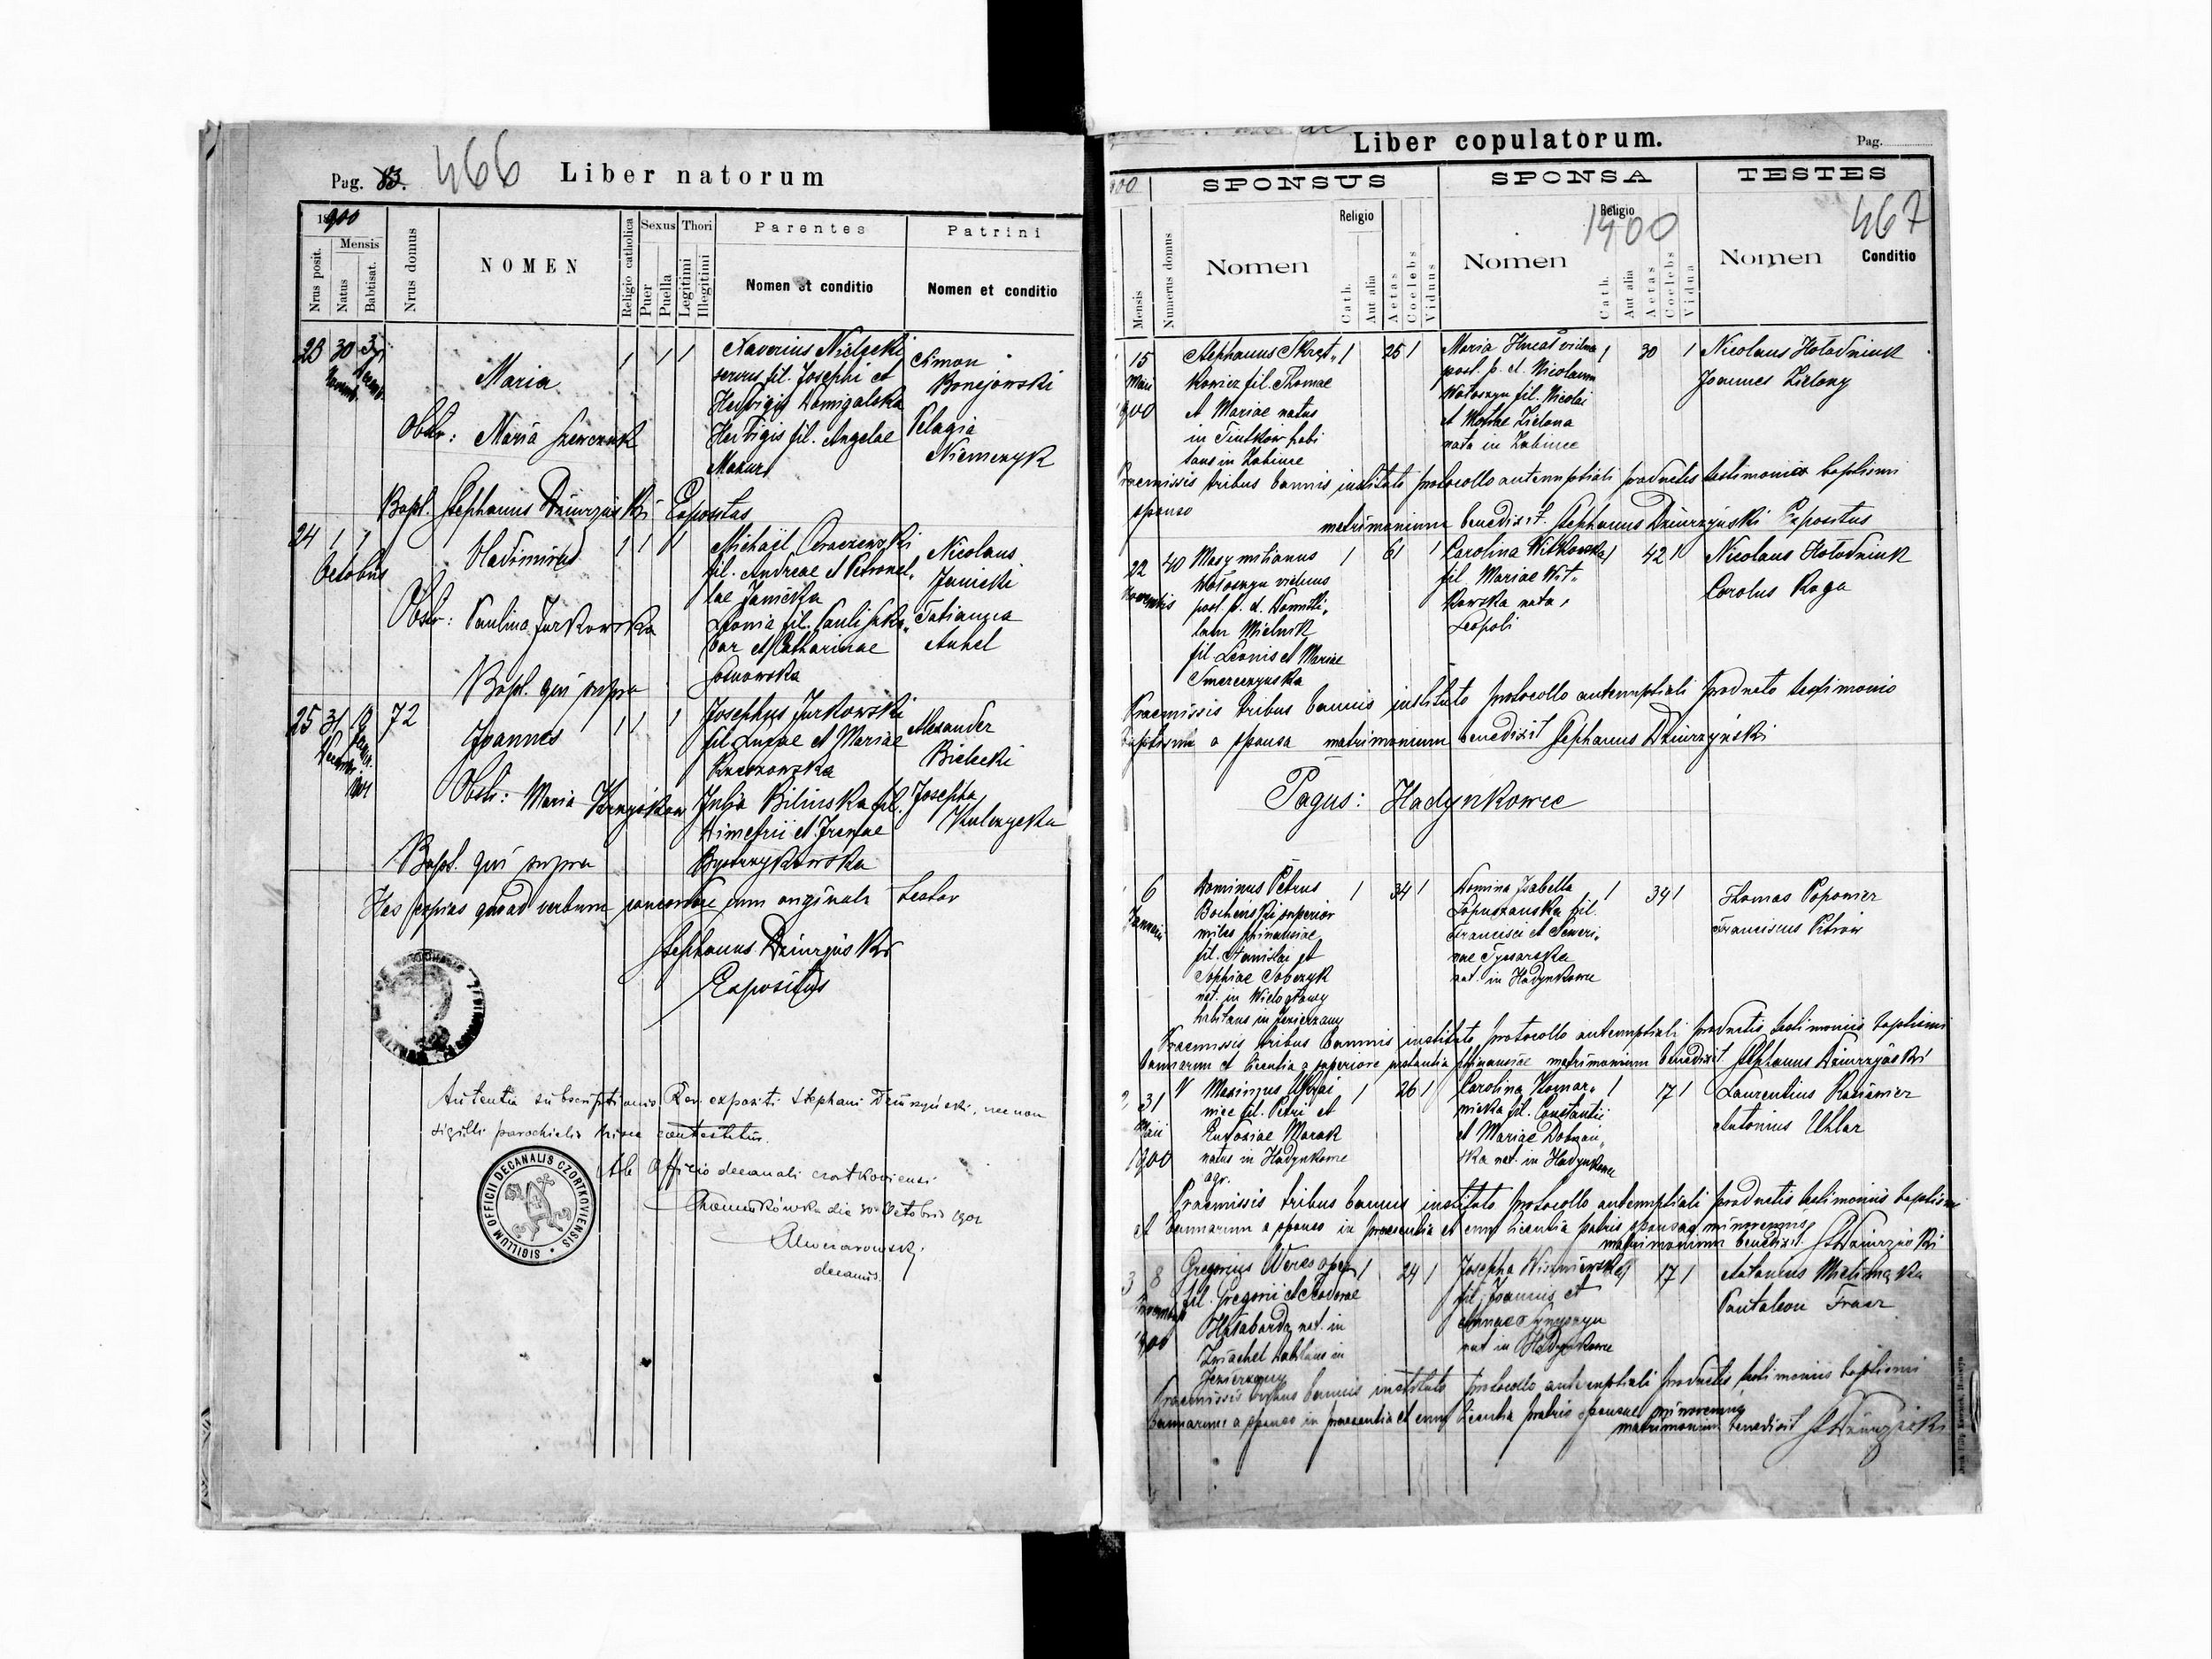 Pag. 83. 466 Liber natorum
1900
Nrus posit.
Mensis
Natus
Babtisat.
Nrus domus
NOMEN
Religio catholica
Sexus
Puer
Puella
Thori
Legitimi
Illegitimi
Parentes
Nomen et conditio
Patrini
Nomen et conditio
23 30 31
Maria
Obstr: Maria Szewczuk
Xaverius
servus fil. Josephi et
Hedvigis Domigalska
Hedvigis fil. Angelae
Mazur
Simon
Bonejowski
Pelagia
Niemczyk
Bapt. Stephanus Dziurzyński Expositus
24 1 7
Octobris
Vladimirus
Obstr: Paulina Jurkowska
Bapt. qui supra
Michaël
fil. Andreae et Petronel„
lae Janicka
Leonia fil. Pauli
bar et Catharinae
Sosnowska
Nicolaus
Janicki
Tatianna
Anhel
25 31 72
Joannes
Obstr: Maria
Bapt. qui supra
Josephus Jurkowski
fil. Lucae et Mariae
Julia Bilinska fil.
Dimetrii et Irenae
Alexander
Bielecki
Josepha
Kulczycka
Has copias quoad verbum concordare cum originale testor
Stephanus Dziurzyński
Expositus
Autentia subscriptionis Rev. expositi Stephani Dziurzyński, necnon
sigilli parochialis hisce contestatur.
Ab Officio decanali czortkoviensi
die 30 Octobris 1901
decanus.
SIGILLUM OFFICII DECANALIS CZORTKOVIENSIS
Liber copulatorum. Pag.
1900
467
Mensis
Numerus domus
SPONSUS
Nomen
Religio
Cath.
Aut alia
Aetas
Coelebs
Viduus
SPONSA
Nomen
Religio
1900
Cath.
Aut alia
Aetas
Coelebs
Vidua
TESTES
Nomen
Conditio
15
Maii
1900
Stephanus Skręt„ 1 25 1
kowicz fil. Thomae
et Mariae natus
in Tiutkow habi
tans in Zabince
Maria Hnat vidua 1 30 1
post. p. d. Nicolaum
Wołoszyn fil. Nicolai
et Mariae Zielona
nata in Zabince
Nicolaus Hołodniuk
Joannes Zielony
Praemissis tribus bannis instituto protocollo antenuptiali productis testimoniis baptismi
sponso
matrimonium benedixit Stephanus Dziurzyński Expositus
22 40
Novembris
Maxymilianus 1 61 1
Wołoszyn viduus
post. p. d. Domiti„
lam Mielnik
fil. Leonis et Mariae
Smerczynska
Carolina Witkowska 1 42 1
fil Mariae Wit„
kowska nata
Leopoli
Nicolaus Hołodniuk
Carolus Raga
Praemissis tribus bannis instituto protocollo antenuptiali producto testimonio
baptismi a sponsa matrimonium benedixit Stephanus Dziurzyński
Pagus: Hadynkowce
6
Januarii
Dominus Petrus 1 34 1
Bocheński superior
miles finantiae
fil. Stanislai et
Sophiae Sobczyk
nat. in Wielogłowy
habitans in Jezierzany
Domina Isabella 1 34 1
Łopuszanska fil.
Francisci et Severi„
nae Tyssarska
nat. in Hadynkowce
Thomas Popowicz
Franciscus Pitrow
Praemissis tribus bannis instituto protocollo antenuptiali productis testimoniis baptismi
bannorum et licentia a superiore instantia finantiae matrimonium benedixit Stephanus Dziurzyński
2 31
Maii
1900
Maximus 1 26 1
nice fil. Petri et
Eudoxiae Marak
natus in Hadynkowce
agr.
Carolina Komar„ 1 17 1
nicka fil. Constantii
et Mariae Dobrzań„
ska nat. in Hadynkowce
Laurentius
Antonius Uhlar
Praemissis tribus bannis instituto protocollo antenuptiali productis testimoniis baptismi
et bannorum a sponso in praesentia et cum licentia patris sponsae minorennis
matrimonium benedixit StDziurzyński
3 8
1900
Gregorius 1 24 1
fil. Gregorii et Theodorae
nat. in
Zwiachel habitans in
Jezierzany
Josepha Wiśniewska 1 17 1
fil. Joannis et
Annae
nat in Hadynkowce
Antonius
Pantaleon Fracz
Praemissis tribus bannis instituto protocollo antenuptiali productis testimoniis baptismi
bannorum a sponso in praesentia et cum licentia patris sponsae minorennis
matrimonium benedixit StDziurzyński